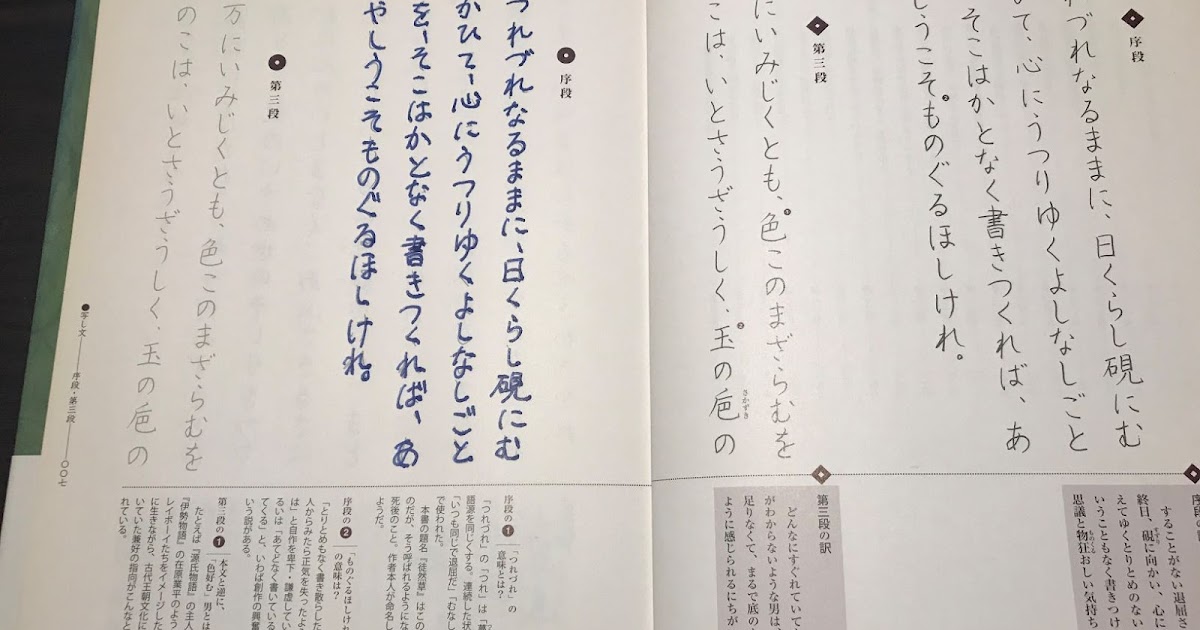 序段
れづれなるままに、日くらし硯にむ
いて、心にうつりゆくよしなしごと
そこはかとなく書きつくれば、あ
しうこそものぐるほしけれ。
第三段
にいみじくとも、色このまざらむを
こは、いとさうざうしく、玉の巵の
さかずき
することがない退屈さ
終日、硯に向かい、心に
えてゆくとりとめのない
いうこともなく書きつけ
思議と物狂おしい気持ち
第三段の訳
どんなにすぐれていて
がわからないような男は、
足りなくて、まるで底の
ように感じられるにちが
序段
つれづれなるままに、日くらし硯にむ
かひて、心にうつりゆくよしなしごと
を、そこはかとなく書きつくれば、あ
やしうこそものぐるほしけれ。
第三段
万にいみじくとも、色このまざらむを
のこは、いとさうざうしく、玉の巵の
序段の1
「つれづれ」の
意味とは？
「つれづれ」の「つれ」は「
語源を同じくする。連続した状
「いつも同じで退屈だ」「むなし
で使われた。
本書の題名『徒然草』はこの
のだが、そう呼ばれるようにな
死後のこと。作者本人が命名し
ようだ。
序段の2
「ものぐるほしけれ
の意味は？
「とりとめもなく書き散らした
人からみたら正気を失ったよう
は」と自作を卑下・謙虚してい
るいは「あてどなく書いている
てくる」と、いわば創作の興奮
いう説がある。
第三段の1
本文と逆に、
「色好む」男とは
たとえば『源氏物語』の主人
『伊勢物語』の在原業平のよう
レイボーイたちをイメージした
に生きながら、古代王朝文化に
いていた兼好の指向がこんなと
れている。
●写し文――序段・第三段――〇〇七